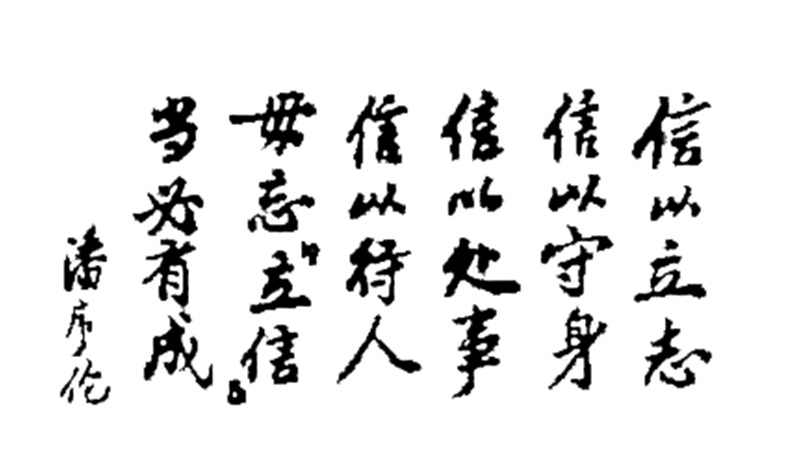 信以立志
信以守身
信以处事
信以待人
毋忘立信
当必有成
潘序伦